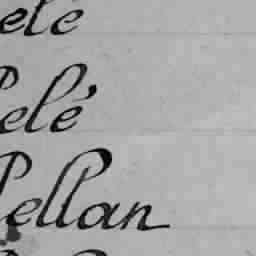 elé
Pelé
Pellan